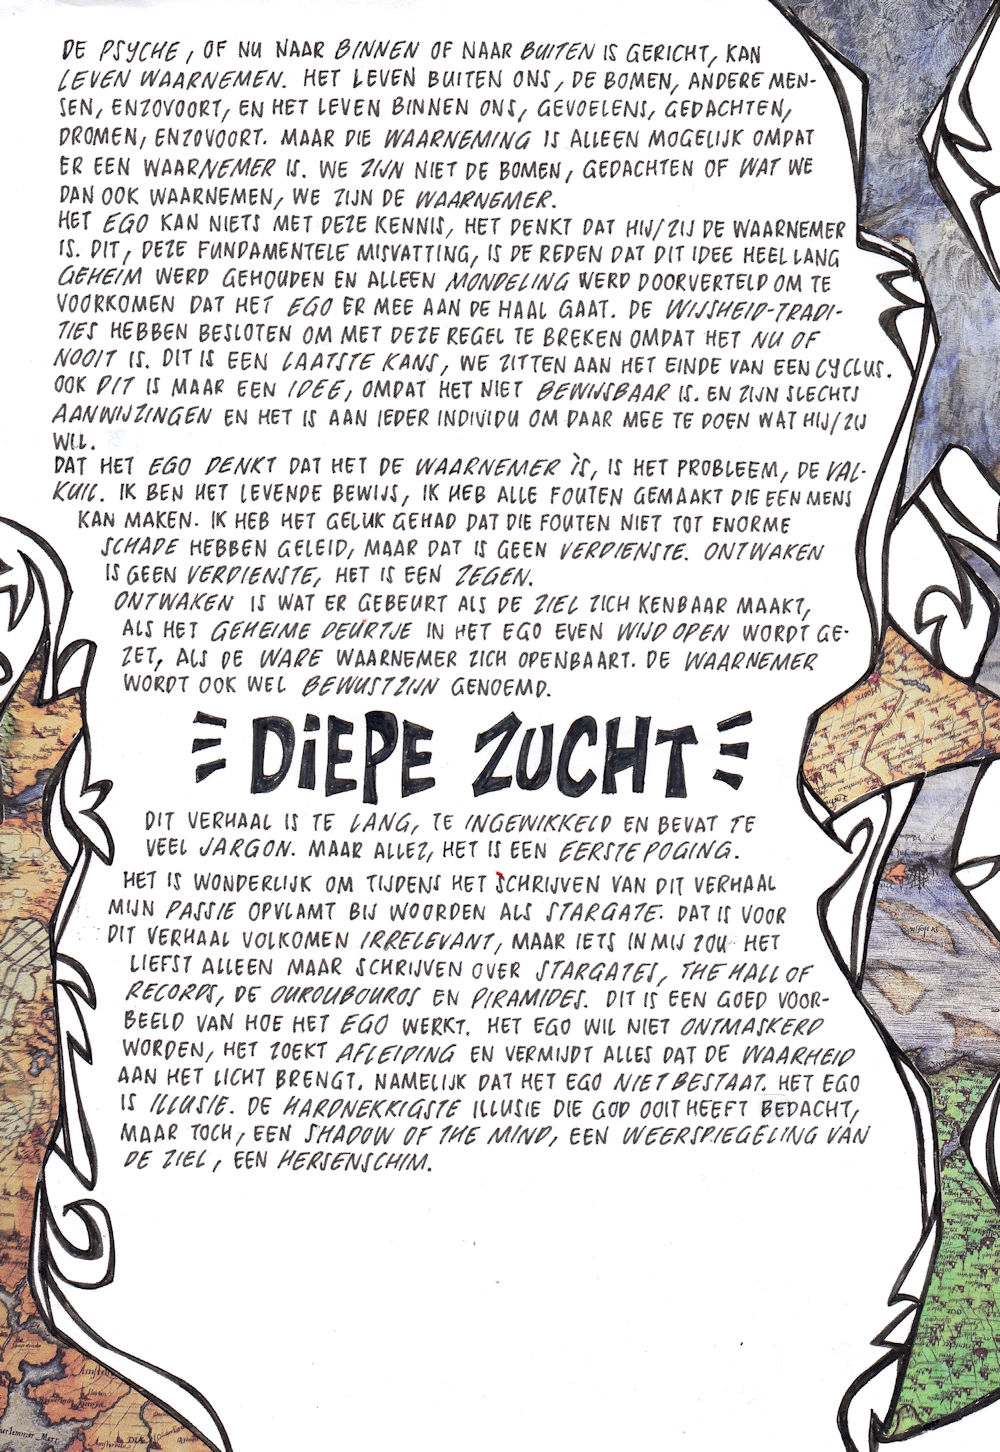 DE PSYCHE, OF NU NAAR BINNEN OF NAAR BUITEN IS GERICHT, KAN
LEVEN WAARNEMEN. HET LEVEN BUITEN ONS, DE BOMEN, ANDERE MEN-
SEN, ENZOVOORT, EN HET LEVEN BINNEN ONS, GEVOELENS, GEDACHTEN,
DROMEN, ENZOVOORT. MAAR DIE WAARNEMING IS ALLEEN MOGELIJK OMDAT
ER EEN WAARNEMER IS. WE ZIJN NIET DE BOMEN, GEDACHTEN OF WAT WE
DAN OOK WAARNEMEN, WE ZIJN DE WAARNEMER.
HET EGO KAN NIETS MET DEZE KENNIS, HET DENKT DAT HIJ/ZIJ DE WAARNEMER
IS. DIT, DEZE FUNDAMENTELE MISVATTING, IS DE REDEN DAT DIT IDEE HEEL LANG
GEHEIM WERD GEHOUDEN EN ALLEEN MONDELING WERD DOORVERTELD OM TE
VOORKOMEN DAT HET EGO ER MEE AAN DE HAAL GAAT. DE WIJSHEID-TRADI-
TIES HEBBEN BESLOTEN OM MET DEZE REGEL TE BREKEN OMDAT HET NU OF
NOOIT IS. DIT IS EEN LAATSTE KANS, WE ZITTEN AAN HET EINDE VAN EEN CYCLUS.
OOK DIT IS MAAR EEN IDEE, OMDAT HET NIET BEWIJSBAAR IS. EN ZIJN SLECHTS
AANWIJZINGEN EN HET IS AAN IEDER INDIVIDU OM DAAR MEE TE DOEN WAT HIJ/ZIJ
WIL.
DAT HET EGO DENKT DAT HET DE WAARNEMER ÌS, IS HET PROBLEEM, DE VAL-
KUIL. IK BEN HET LEVENDE BEWIJS, IK HEB ALLE FOUTEN GEMAAKT DIE EEN MENS
KAN MAKEN. IK HEB HET GELUK GEHAD DAT DIE FOUTEN NIET TOT ENORME
SCHADE HEBBEN GELEID, MAAR DAT IS GEEN VERDIENSTE. ONTWAKEN
IS GEEN VERDIENSTE, HET IS EEN ZEGEN.
ONTWAKEN IS WAT ER GEBEURT ALS DE ZIEL ZICH KENBAAR MAAKT,
ALS HET GEHEIME DEURTJE IN HET EGO EVEN WIJD OPEN WORDT GE-
ZET, ALS DE WARE WAARNEMER ZICH OPENBAART. DE WAARNEMER
WORDT OOK WEL BEWUSTZIJN GENOEMD.
DIEPE ZUCHT
DIT VERHAAL IS TE LANG, TE INGEWIKKELD EN BEVAT TE
VEEL JARGON. MAAR ALLEZ, HET IS EEN EERSTE POGING.
HET IS WONDERLIJK OM TIJDENS HET SCHRIJVEN VAN DIT VERHAAL
MIJN PASSIE OPVLAMT BIJ WOORDEN ALS STARGATE. DAT IS VOOR
DIT VERHAAL VOLKOMEN IRRELEVANT, MAAR IETS IN MIJ ZOU HET
LIEFST ALLEEN MAAR SCHRIJVEN OVER STARGATES, THE HALL OF
RECORDS, DE OUROUBOUROS EN PIRAMIDES. DIT IS EEN GOED VOOR-
BEELD VAN HOE HET EGO WERKT. HET EGO WIL NIET ONTMASKERD
WORDEN, HET ZOEKT AFLEIDING EN VERMIJDT ALLES DAT DE WAARHEID
AAN HET LICHT BRENGT. NAMELIJK DAT HET EGO NIET BESTAAT. HET EGO
IS ILLUSIE. DE HARDNEKKIGSTE ILLUSIE DIE GOD OOIT HEEFT BEDACHT,
MAAR TOCH, EEN SHADOW OF THE MIND, EEN WEERSPIEGELING VAN
DE ZIEL, EEN HERSENSCHIM.